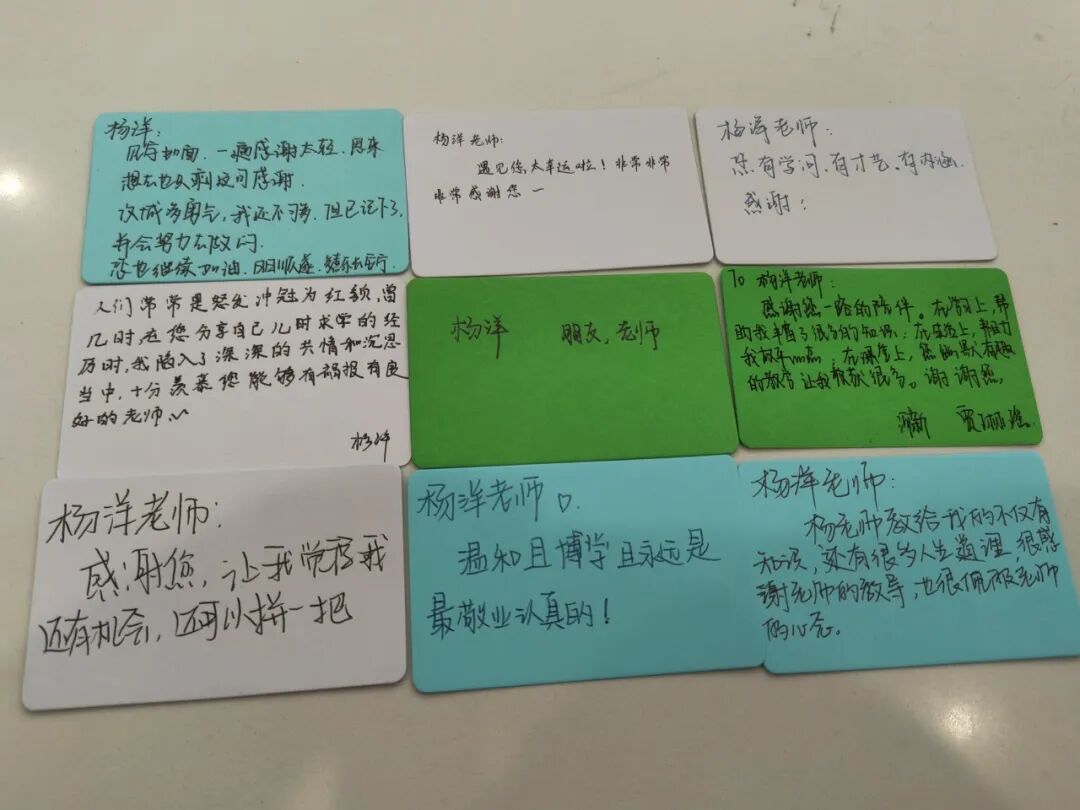 杨洋：
见字如面，一遍感谢太轻，思来
想去也只剩这句感谢。
攻城多勇气，我还不够，但已记下了，
并会努力去做
您也继续加油，
杨洋老师：
遇见您太幸运啦！非常非常
非常感谢您～
杨洋老师：
您有学问、有才艺、有内涵
感谢！
人们常常是怒发冲冠为红颜，曾
几时在您分享自己儿时求学的经
历时，我陷入了深深的共情和沉思
当中，十分羡慕您能够有祸报有良
好的老师
杨洋
杨洋 朋友，老师
To 杨洋老师：
感谢您一路的陪伴。在学习上，帮
助我丰富了很多的知识；在生活上，帮助
我；在课堂上，您幽默有趣
的教学让我收获很多。谢谢您。
杨洋老师：
感谢您，让我觉得我
还有机会，还可以拼一把
杨洋老师
温和且博学且永远是
最敬业认真的！
杨洋老师：
杨老师教给我的不仅有
知识，还有很多人生道理 很感
谢老师的教导，也很佩服老师
的心态。